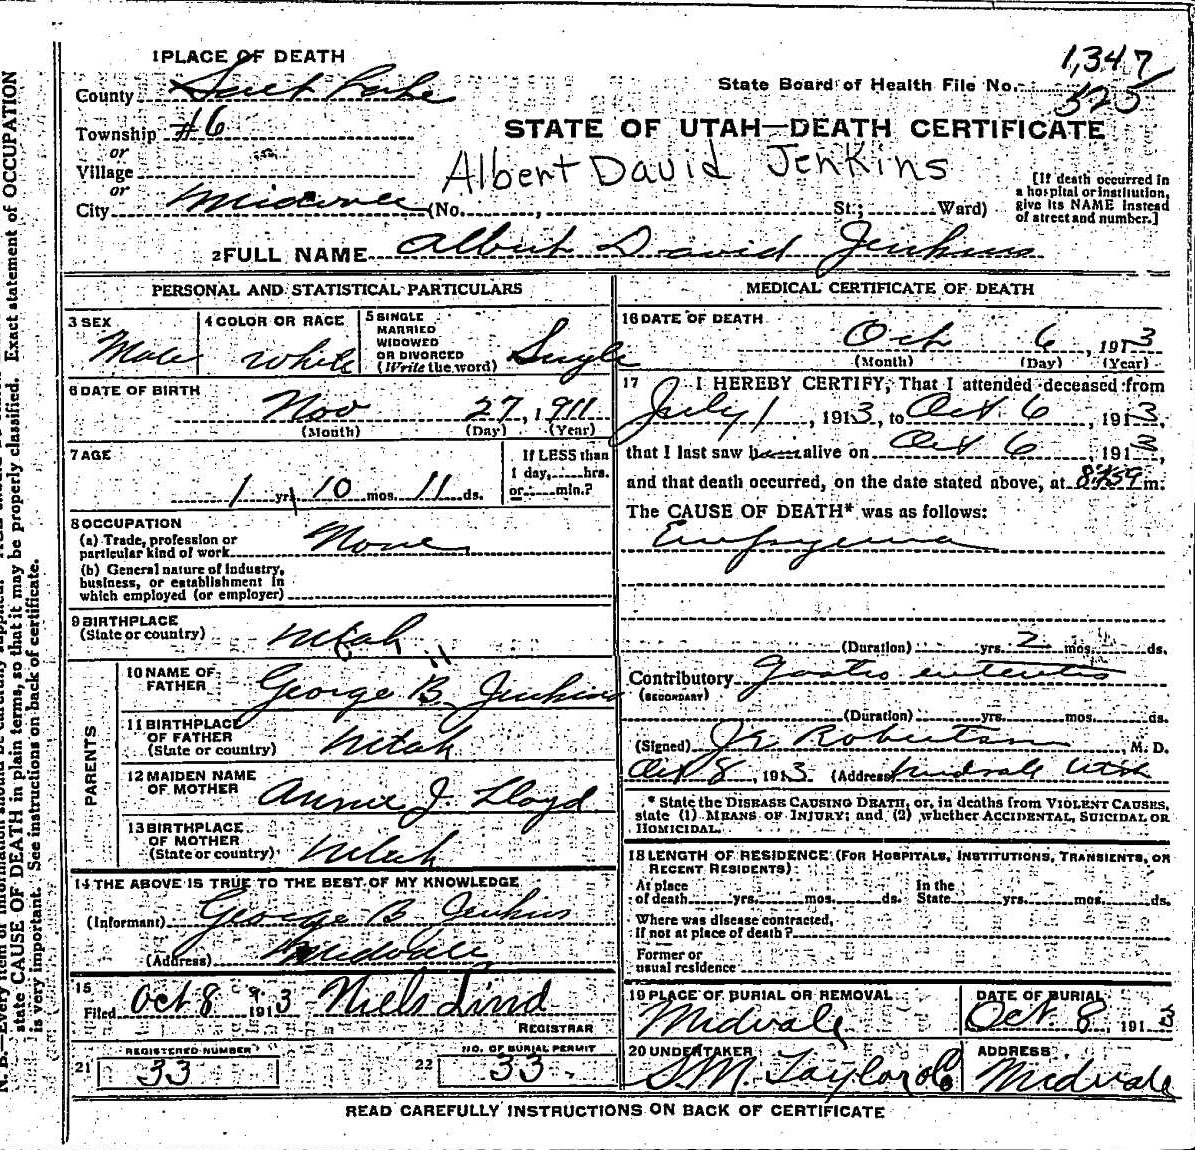 1,347
525
State Board of Health File No.
1 PLACE OF DEATH
County Salt Lake
Township #6
or
Village
or
City Midvale (No. , St.; Ward)
STATE OF UTAH—DEATH CERTIFICATE
Albert David Jenkins
[If death occurred in
a hospital or institution,
give its NAME instead
of street and number.]
2 FULL NAME Albert David Jenkins
PERSONAL AND STATISTICAL PARTICULARS
3 SEX
Male
4 COLOR OR RACE
White
5 SINGLE
MARRIED
WIDOWED
OR DIVORCED
(Write the word)
Single
6 DATE OF BIRTH
Nov 27, 1911
(Month) (Day) (Year)
7 AGE
1 yr 10 mos. 11 ds.
If LESS than
1 day, hrs.
or min.?
8 OCCUPATION
(a) Trade, profession or
particular kind of work None
(b) General nature of industry,
business, or establishment in
which employed (or employer)
9 BIRTHPLACE
(State or country) Utah
PARENTS
10 NAME OF
FATHER George B. Jenkins
11 BIRTHPLACE
OF FATHER
(State or country) Utah
12 MAIDEN NAME
OF MOTHER Annie J. Lloyd
13 BIRTHPLACE
OF MOTHER
(State or country) Utah
14 THE ABOVE IS TRUE TO THE BEST OF MY KNOWLEDGE
(Informant) George B Jenkins
(Address) Midvale
15
Filed Oct 8 1913 Niels Lind
REGISTRAR
REGISTERED NUMBER
21 33
NO. OF BURIAL PERMIT
22 33
MEDICAL CERTIFICATE OF DEATH
16 DATE OF DEATH
Oct 6, 1913
(Month) (Day) (Year)
17 I HEREBY CERTIFY, That I attended deceased from
July 1, 1913, to Oct. 6, 1913,
that I last saw him alive on Oct 6, 1913,
and that death occurred, on the date stated above, at m.
The CAUSE OF DEATH* was as follows:
Empyema
(Duration) yrs. 2 mos. ds.
Contributory Gastro enteritis
(SECONDARY)
(Duration) yrs. mos. ds.
(Signed) Robertson, M. D.
Oct 8, 1913 (Address) Midvale Utah
* State the DISEASE CAUSING DEATH, or, in deaths from VIOLENT CAUSES,
state (1) MEANS OF INJURY; and (2) whether ACCIDENTAL, SUICIDAL OR
HOMICIDAL.
18 LENGTH OF RESIDENCE (FOR HOSPITALS, INSTITUTIONS, TRANSIENTS, OR
RECENT RESIDENTS)
At place
of death yrs. mos. ds.
In the
State yrs. mos. ds.
Where was disease contracted,
if not at place of death?
Former or
usual residence
19 PLACE OF BURIAL OR REMOVAL
Midvale
DATE OF BURIAL
Oct. 8, 1913
20 UNDERTAKER
S.M. Taylor Co
ADDRESS
Midvale
READ CAREFULLY INSTRUCTIONS ON BACK OF CERTIFICATE
N. B.—Every item of information should be carefully supplied.
state CAUSE OF DEATH in plain terms, so that it may be properly classified. Exact statement of OCCUPATION
is very important. See instructions on back of certificate.